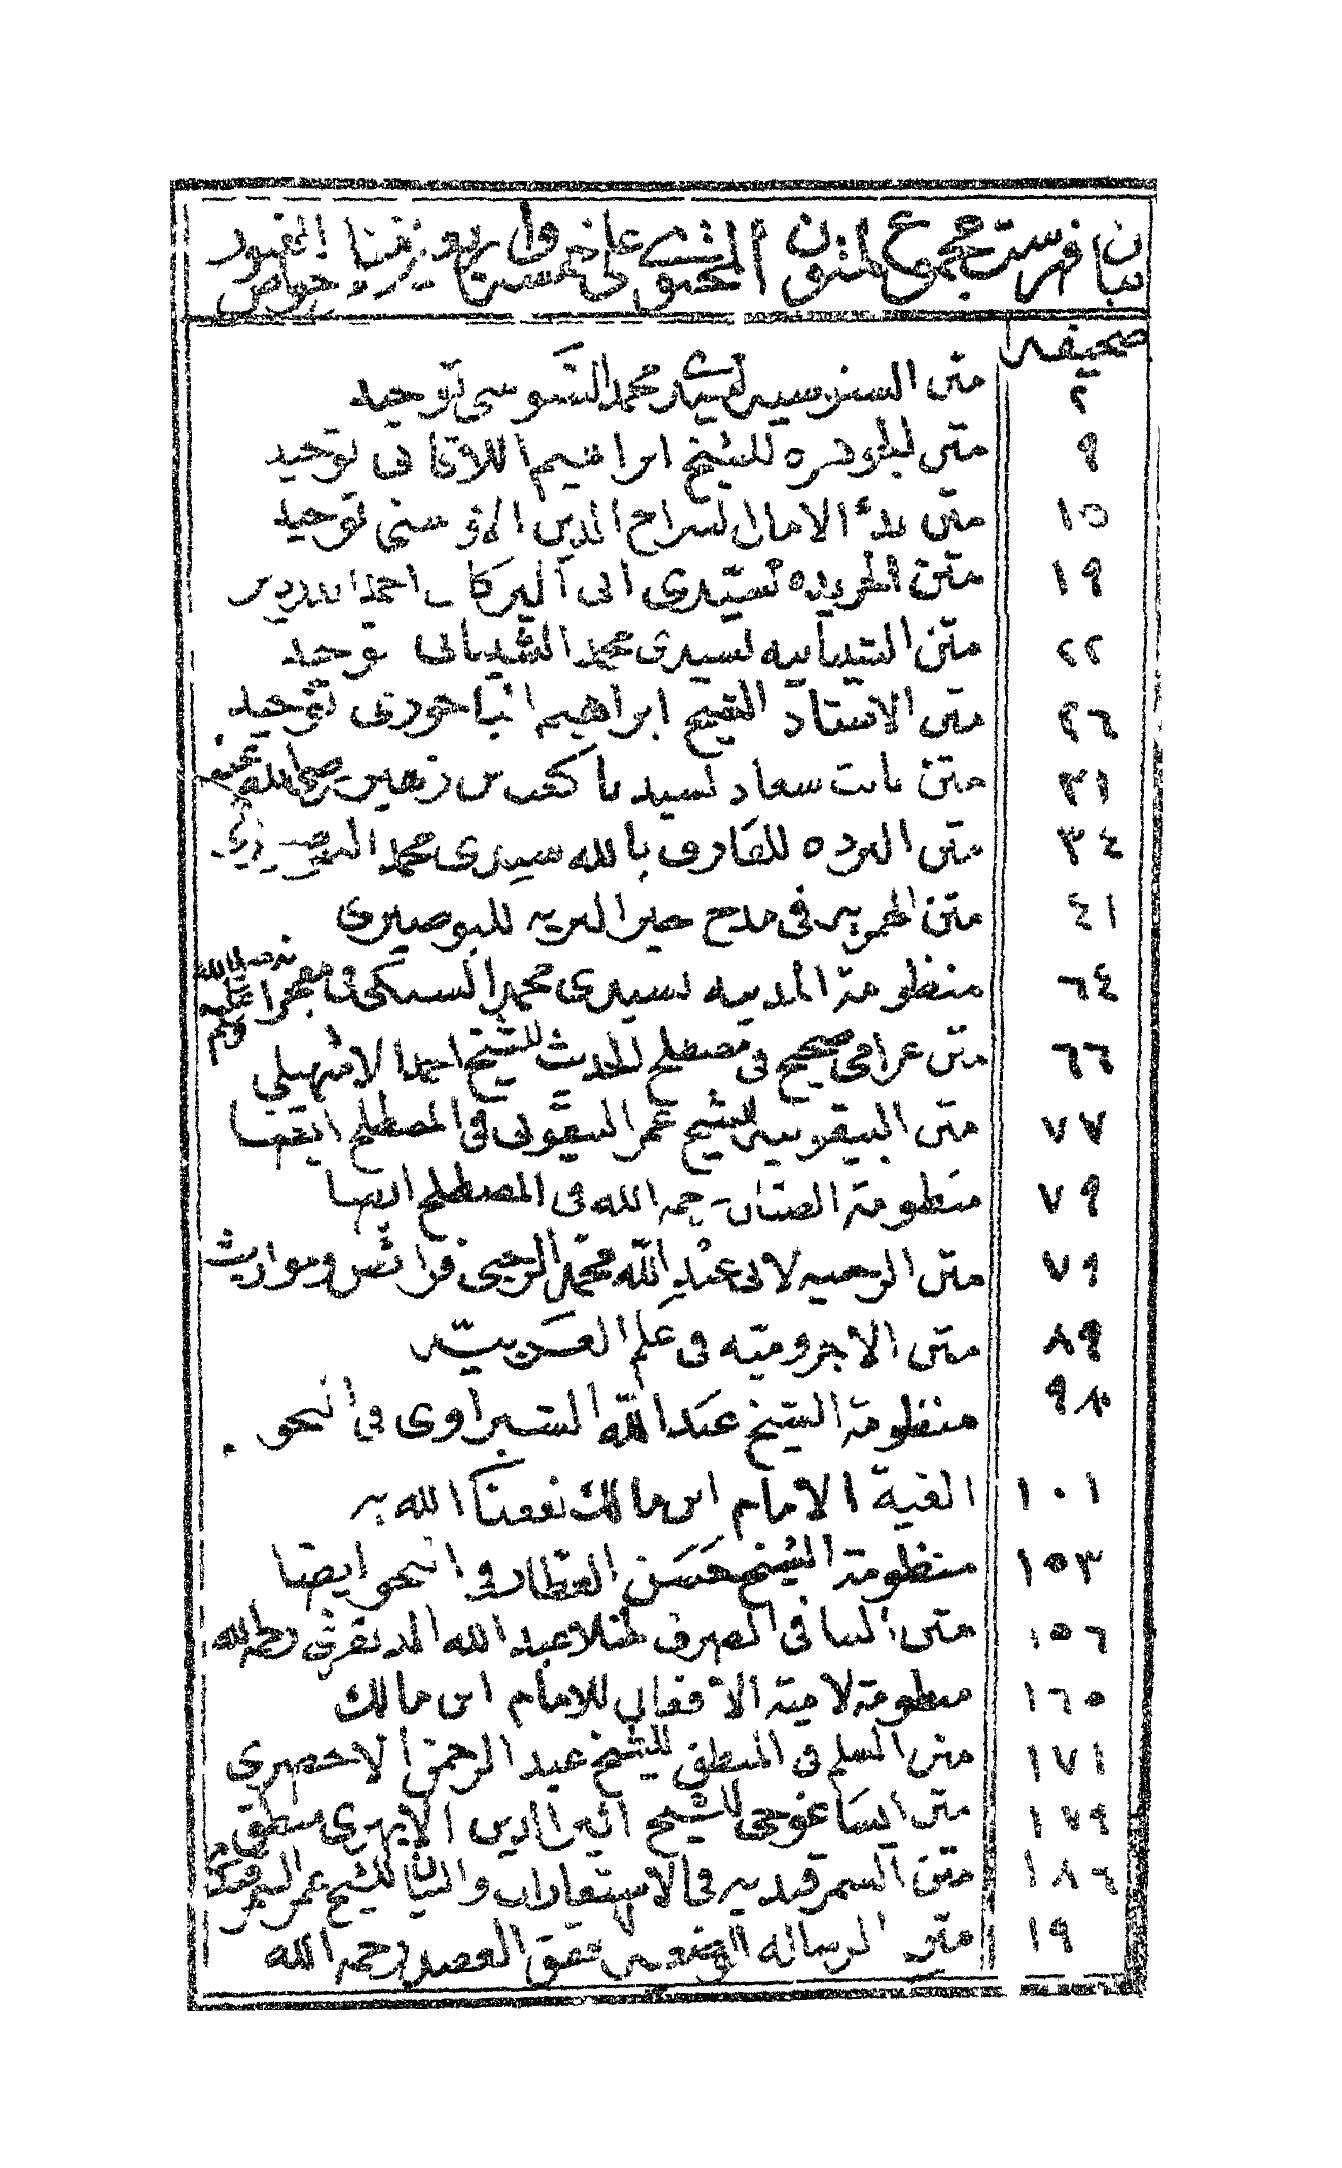 بيان فهرست مجموع المتون المحتوى على خمسين
صحيفه
٢ متن السنوسيه لسيدى محمد السنوسى توحيد
٩ متن الجوهره للشيخ ابراهيم اللاقانى توحيد
١٥ متن بدء الامال لسراج الدين الاوسنى توحيد
١٩ متن الخريده لسيدى ابى البركات احمد الدردير
٢٢ متن الشيبانيه لسيدى محمد الشيبانى توحيد
٢٦ متن الاستاذ الشيخ ابراهيم الباجورى توحيد
٣١ متن بانت سعاد لسيدنا كعب بن زهير رضى الله عنه
٣٤ متن البرده للعارف بالله سيدى محمد البوصيرى
٤١ متن الهمزيه فى مدح خير البريه للبوصيرى
٦٤ منظومة لسيدى محمد السبكى فى معجزاته صلى الله عليه وسلم
٦٦ متن غرامى صحيح فى مصطلح الحديث للشيخ احمد الاشبيلى
٧٧ متن البيقونيه للشيخ عمر البيقونى فى المصطلح ايضا
٧٩ منظومة الصبان رحمه الله فى المصطلح ايضا
٧٩ متن الرحبيه لابى عبد الله محمد الرحبى فرائض ومواريث
٨٩ متن الاجروميه فى علم العربيّه
٩٨ منظومة الشيخ عبد الله الشبراوى فى النحو
١٠١ الفية الامام ابن مالك نفعنا الله به
١٥٣ منظومة الشيخ حسن العطار فى النحو ايضا
١٥٦ متن البنا فى الصرف لمنلا عبد الله رحمه الله
١٦٥ منظومة لامية الافعال للامام ابن مالك
١٧١ متن السلم فى المنطق للشيخ عبد الرحمن الاخضرى
١٧٩ متن ايساغوجى للشيخ اثير الدين الابهرى منطق
١٨٦ متن السمرقنديه فى الاستعارات والبيان للشيخ
١٩ متن الرسالة الوضعيه العضد رحمه الله